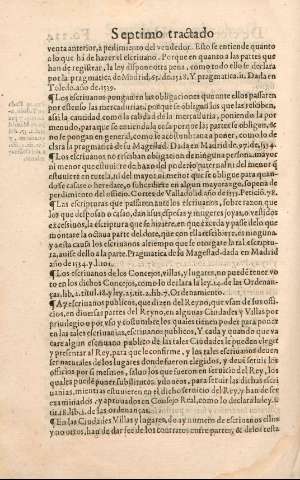 Septimo tractado
venta anterior, a pedimiento del vendedor. Esto se entiende quanto
a lo que ha de hazer el escriuano. Porque en quanto a las partes que
han de registrar, la ley dispone otra pena, como todo ello se declara
por la pragmatica de Madrid. año. de 1528. Y pragmatica. Dada en
Toledo. año de 1539.
¶ Los escriuanos pongan en las obligaciones que ante ellos passaren
por estenso las mercadurias, porque se obligan los que las resciben,
assi la cantidad como la calidad de la mercaduria, poniendo lo por
menudo, para que se entienda
se pongan en general, como lo acostumbran a poner, como lo de
clara la pragmatica de su Magestad. Dada en Madrid.
¶ Los escriuanos no resciban obligacion de ninguna persona mayor
ni menor que estuuiere debaxo del poder del padre
estuuiere en tutela, ni del mayor ni menor que se obligue para quan
do se casare o heredare, o subcediere en algun mayorazgo, so pena
de perdimiento del officio. Cortes de Valladolid año de
¶ Las escripturas que passaren ante los escriuanos, sobre razon que
los que desposan o casan, dan a sus esposas y mugeres joyas, o vestidos
excessiuos, la escriptura que se hiziere, en que exceda y passe de lo que
montare la ochaua parte del dote, que con ella rescibiere, es ninguna,
y a esta causa los escriuanos al tiempo que se otorgare la tal escriptu
ra, auise dello a la parte. Pragmatica de su Magestad. dada en Madrid
año de 1534.
¶ Los escriuanos de los Concejos, villas, y lugares, no puede tener vo
to en los dichos Concejos, como lo declara la ley
ças, lib. 2. titul. 18. y ley
¶ Ay escriuanos publicos, que dizen del Reyno, que vsan de sus offi
cios, en diuersas partes del Reyno, en algunas Ciudades y Villas por
priuilegio o por vso y costumbre los quales tienen poder para poner
en las tales escriuanias, escriuanos publicos, Y cada y quando que va
care algun escriuano publico de las tales Ciudades le pueden elegir
y presentar al Rey, para que lo confirme, y los tales escriuanos deuen
ser naturales de los lugares donde fueron elegidos, y deue seruir los
officios por si mesmos, saluo los que fueron en seruicio del Rey, los
quales puede poner substitutos ydoneos, para seruir las dichas escri
uanias, mientras estuuieren en el dicho seruicio del Rey, y han de ser
examinados, y aprouados en Consejo Real, como lo declara
tit. 18. lib. 2. de las ordenanças.
¶ En las Ciudades Villas y lugares, do ay numero de escriuanos ellos
y no otros, han de dar fee de los contratos entre partes, & de los testa